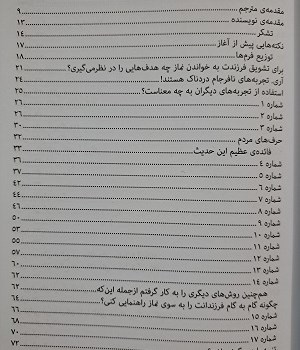 مقدمه‌ی مترجم ۹
مقدمه‌ی نویسنده ۱۳
تشکر ۱۴
نکته‌هایی پیش از آغاز ۱۷
توزیع فرم‌ها ۱۸
برای تشویق فرزندت به خواندن نماز چه هدف‌هایی را در نظرمی‌گیری؟ ۲۱
آری. تجربه‌های نافرجام دردناک هستند! ۲۴
استفاده از تجربه‌های دیگران به چه معناست؟ ۲۵
شماره ۱ ۲۶
شماره ۲ ۲۶
شماره ۳ ۳۰
حرف‌های مردم ۳۲
فائده‌ی عظیم این حدیث ۳۳
شماره ۴ ۳۶
شماره ۵ ۳۷
شماره ۶ ۴۲
شماره ۷ ۴۴
شماره ۸ ۴۹
شماره ۹ ۵۰
شماره ۱۰ ۵۳
شماره ۱۱ ۵۵
شماره ۱۲ ۵۷
شماره ۱۳ ۶۰
شماره ۱۴ ۶۲
هم‌چنین روش‌های دیگری را به کار گرفتم ازجمله این‌که ۶۲
چگونه گام به گام فرزندانت را به سوی نماز راهنمایی کنی؟ ۶۴
شماره ۱۵ ۶۶
شماره ۱۶ ۶۸
شماره ۱۷ ۷۰
۷۲